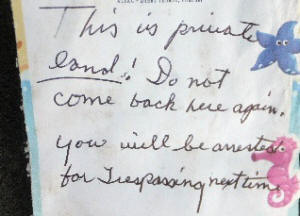 This is private
land! Do not
come back here again.
you will be arrested
for Trespassing next time